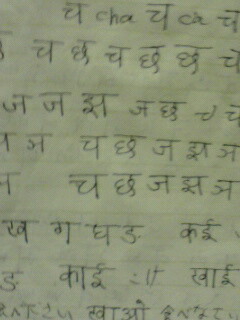 च cha च ca च
च छ च छ छ च
ज ज झ ज छ च च
ञ च छ ज झ ञ
च छ ज झ ञ
ख ग घ ङ कई
ङ काई :॥ खाई
खाओ